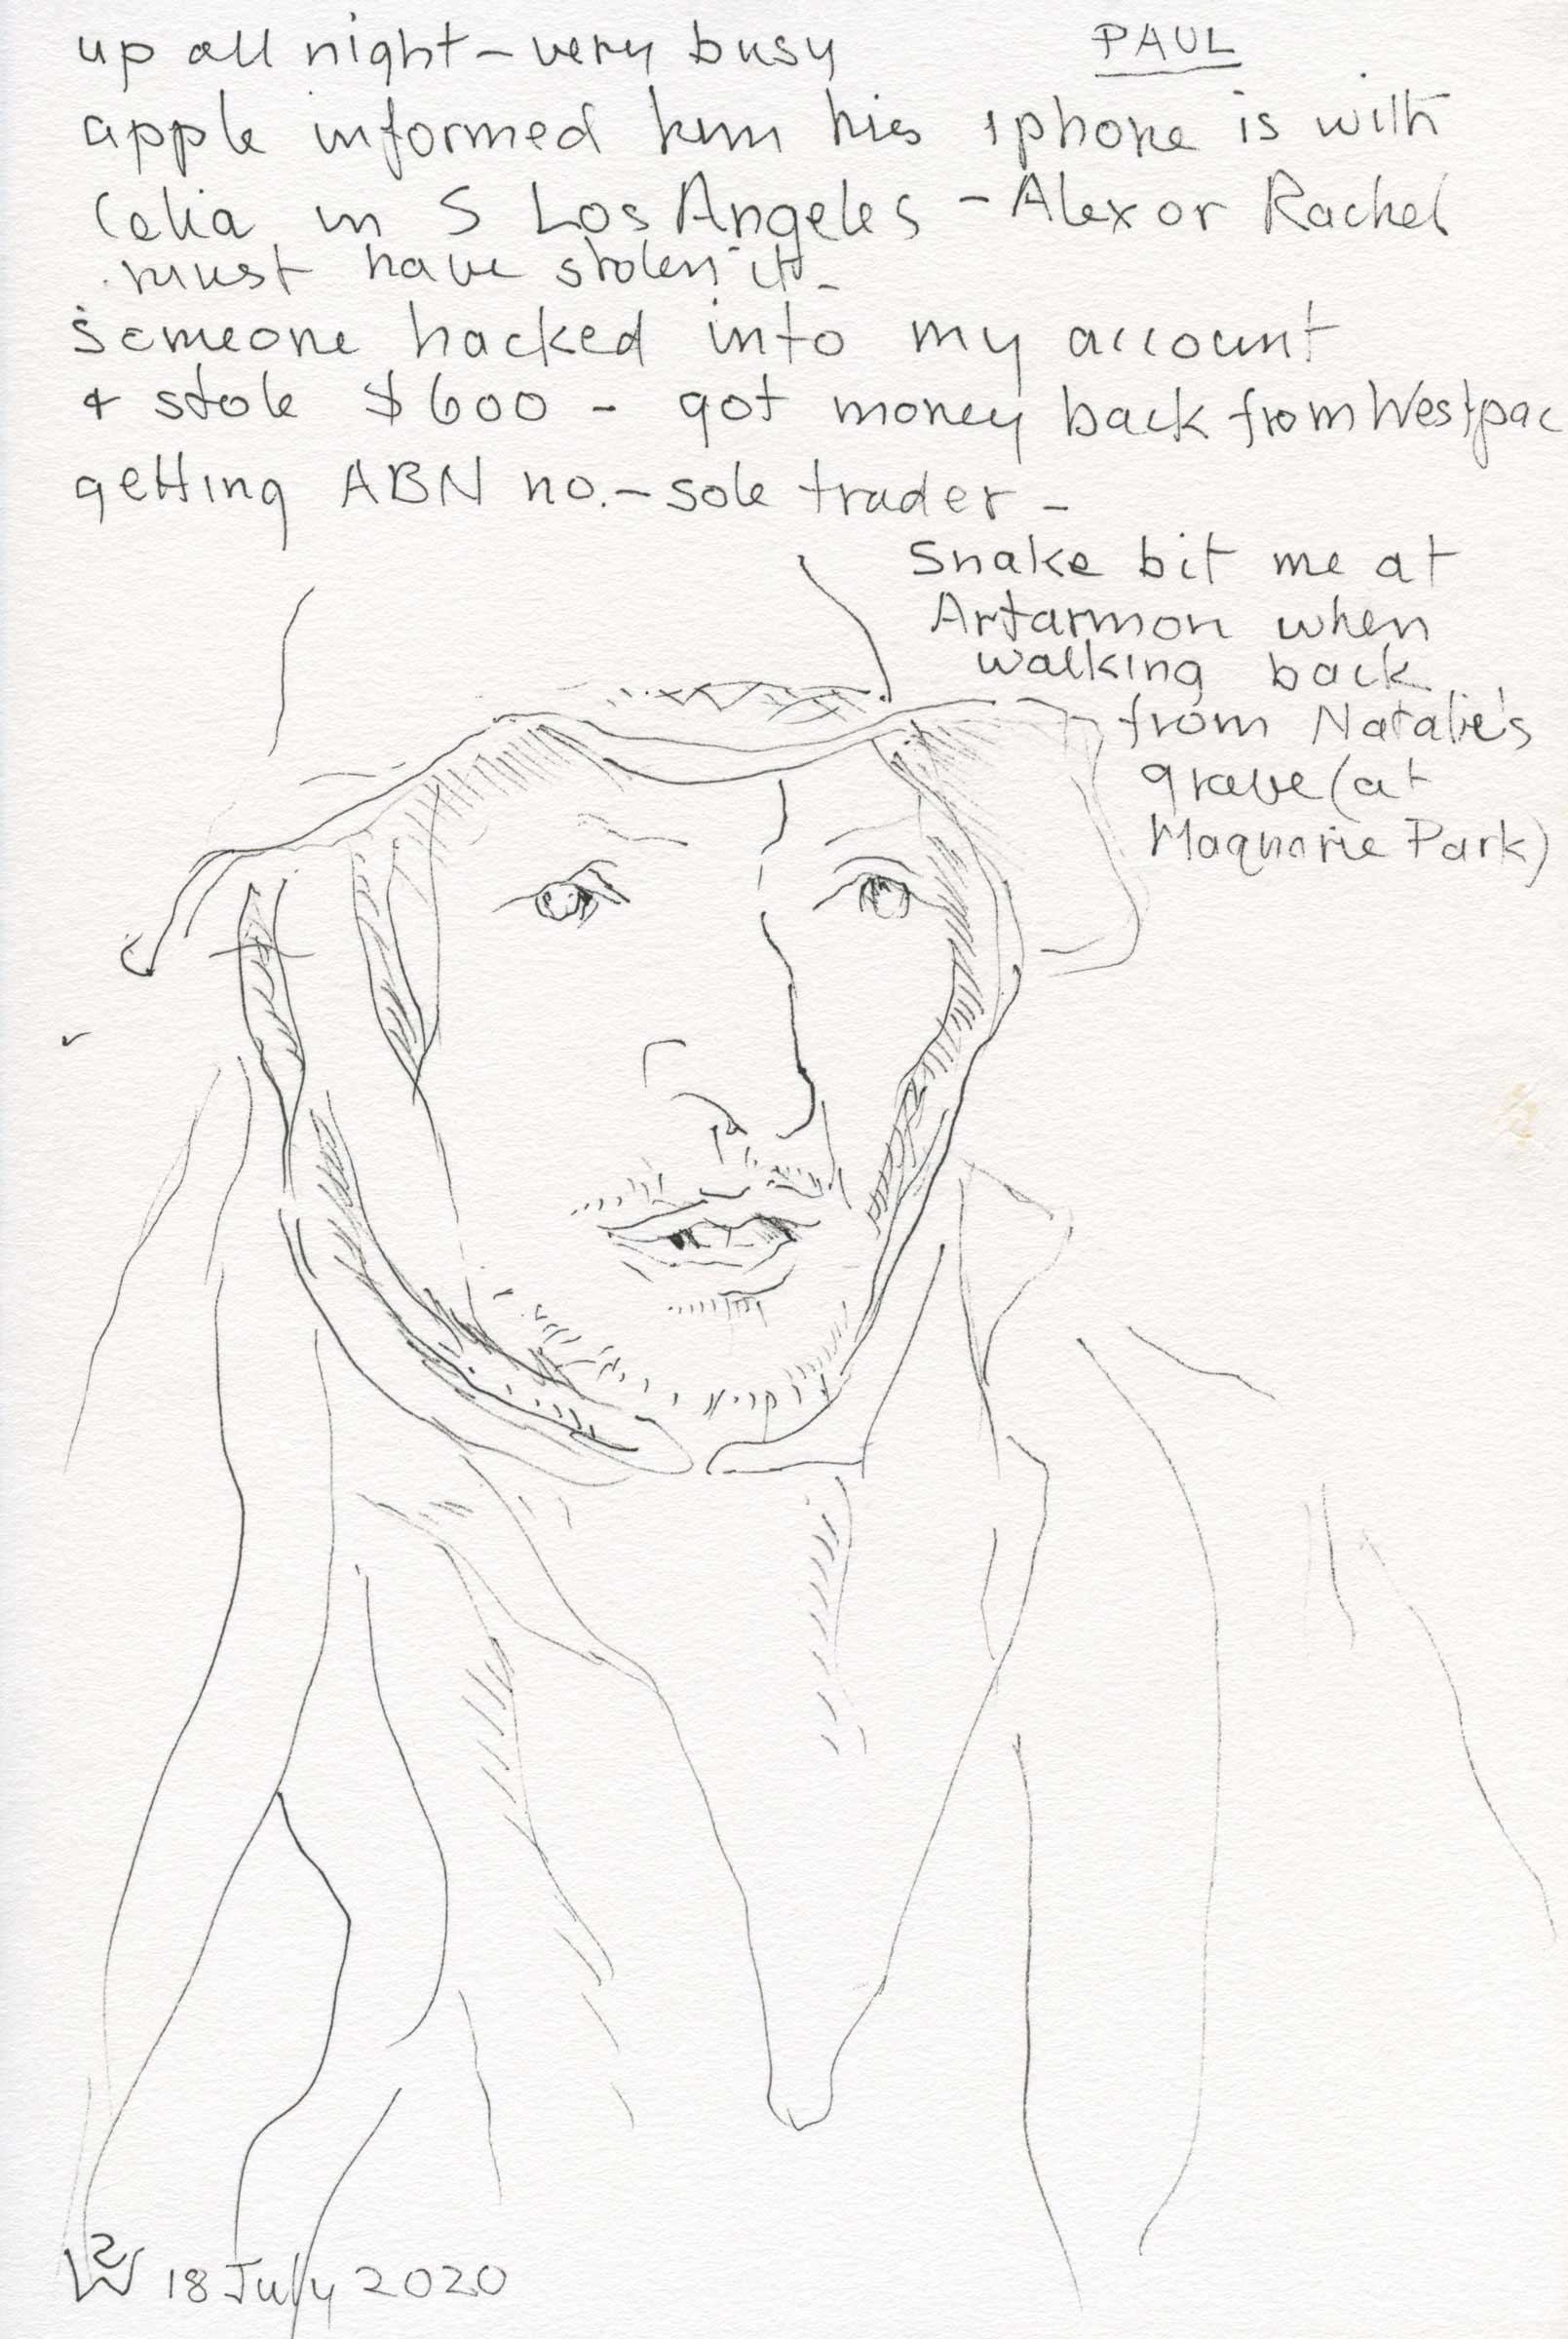 PAUL
up all night – very busy
apple informed him his iphone is with
Celia in S Los Angeles – Alex or Rachel
must have stolen it –
someone hacked into my account
& stole $600 – got money back from Westpac
getting ABN no. – sole trader –
Snake bit me at
Artarmon when
walking back
from Natalie's
grave (at
Maquarie Park)
18 July 2020